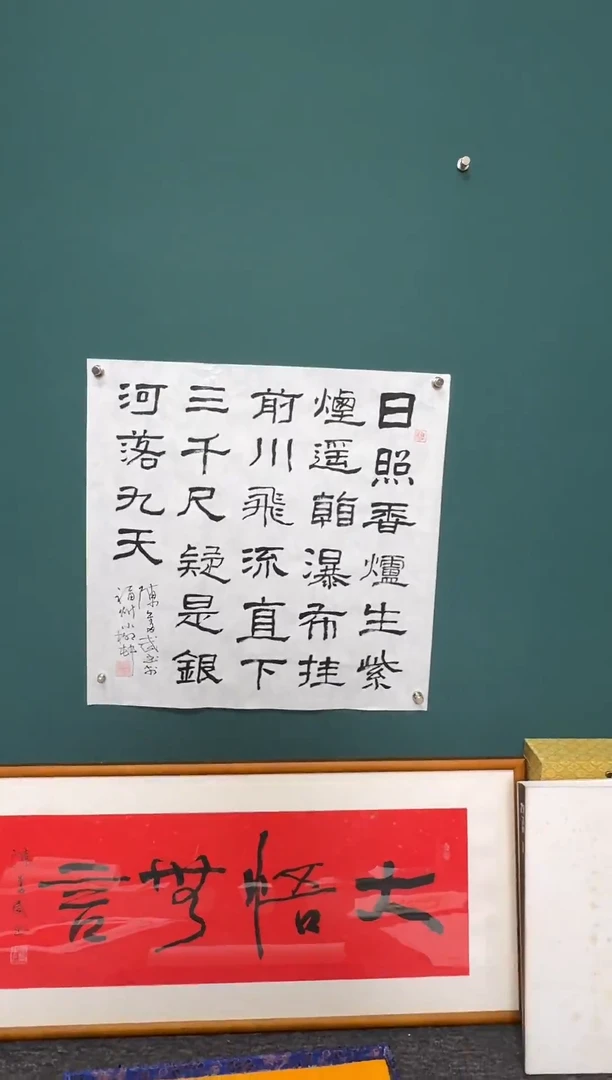 日照香爐生紫
煙遥看瀑布挂
前川飛流直下
三千尺疑是銀
河落九天
福州小柳邨
大悟無言